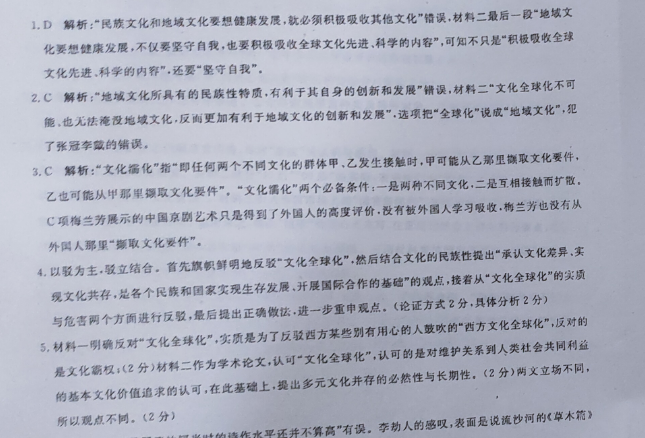 1. D 解析:“民族文化和地域文化要想健康发展,就必须积极吸收其他文化”错误,材料二最后一段“地域文
化要想健康发展,不仅要坚守自我,也要积极吸收全球文化先进、科学的内容”,可知不只是“积极吸收全球
文化先进、科学的内容”,还要“坚守自我”。
2. C 解析:“地域文化所具有的民族性特质,有利于其自身的创新和发展”错误,材料二“文化全球化不可
能、也无法淹没地域文化,反而更加有利于地域文化的创新和发展”,选项把“全球化”说成“地域文化”,犯
了张冠李戴的错误。
3. C 解析:“文化濡化”指“即任何两个不同文化的群体甲、乙发生接触时,甲可能从乙那里撷取文化要件,
乙也可能从甲那里撷取文化要件”。“文化濡化”两个必备条件:一是两种不同文化,二是互相接触而扩散。
C项梅兰芳展示的中国京剧艺术只是得到了外国人的高度评价,没有被外国人学习吸收,梅兰芳也没有从
外国人那里“撷取文化要件”。
4. 以驳为主,驳立结合。首先旗帜鲜明地反驳“文化全球化”,然后结合文化的民族性提出“承认文化差异、实
现文化共存,是各个民族和国家实现生存发展、开展国际合作的基础”的观点,接着从“文化全球化”的实质
与危害两个方面进行反驳,最后提出正确做法,进一步重申观点。(论证方式2分,具体分析2分)
5. 材料一明确反对“文化全球化”,实质是为了反驳西方某些别有用心的人鼓吹的“西方文化全球化”,反对的
是文化霸权;(2分)材料二作为学术论文,认可“文化全球化”,认可的是对维护关系到人类社会共同利益
的基本文化价值追求的认可,在此基础上,提出多元文化并存的必然性与长期性。(2分)两文立场不同,
所以观点不同。(2分)
当时的诗作水平还并不算高”有误。李劼人的感叹,表面是说流沙河的《草木篇》